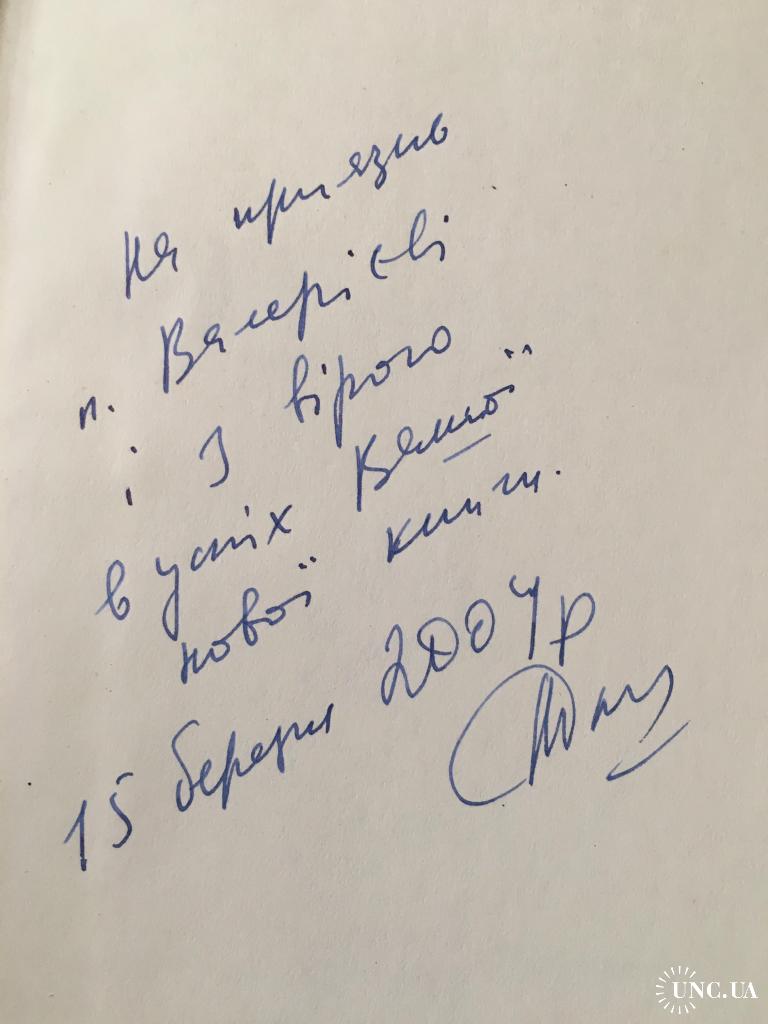 На приязнь
п. Валерієві
і з вірою
в успіх Вашої
нової книги.
15 березня 2004 р
UNC.UA